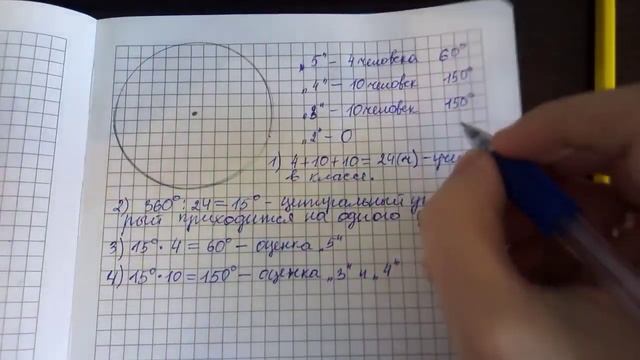 „5" - 4 человека 60°
„4" - 10 человек 150°
„3" - 10 человек 150°
„2" - 0
1) 4+10+10=24(ч)-
в классе.
2) 360°:24=15° - центральный
рый приходится на одного
3) 15°·4=60° - оценка „5"
4) 15°·10=150° - оценка „3" и „4"